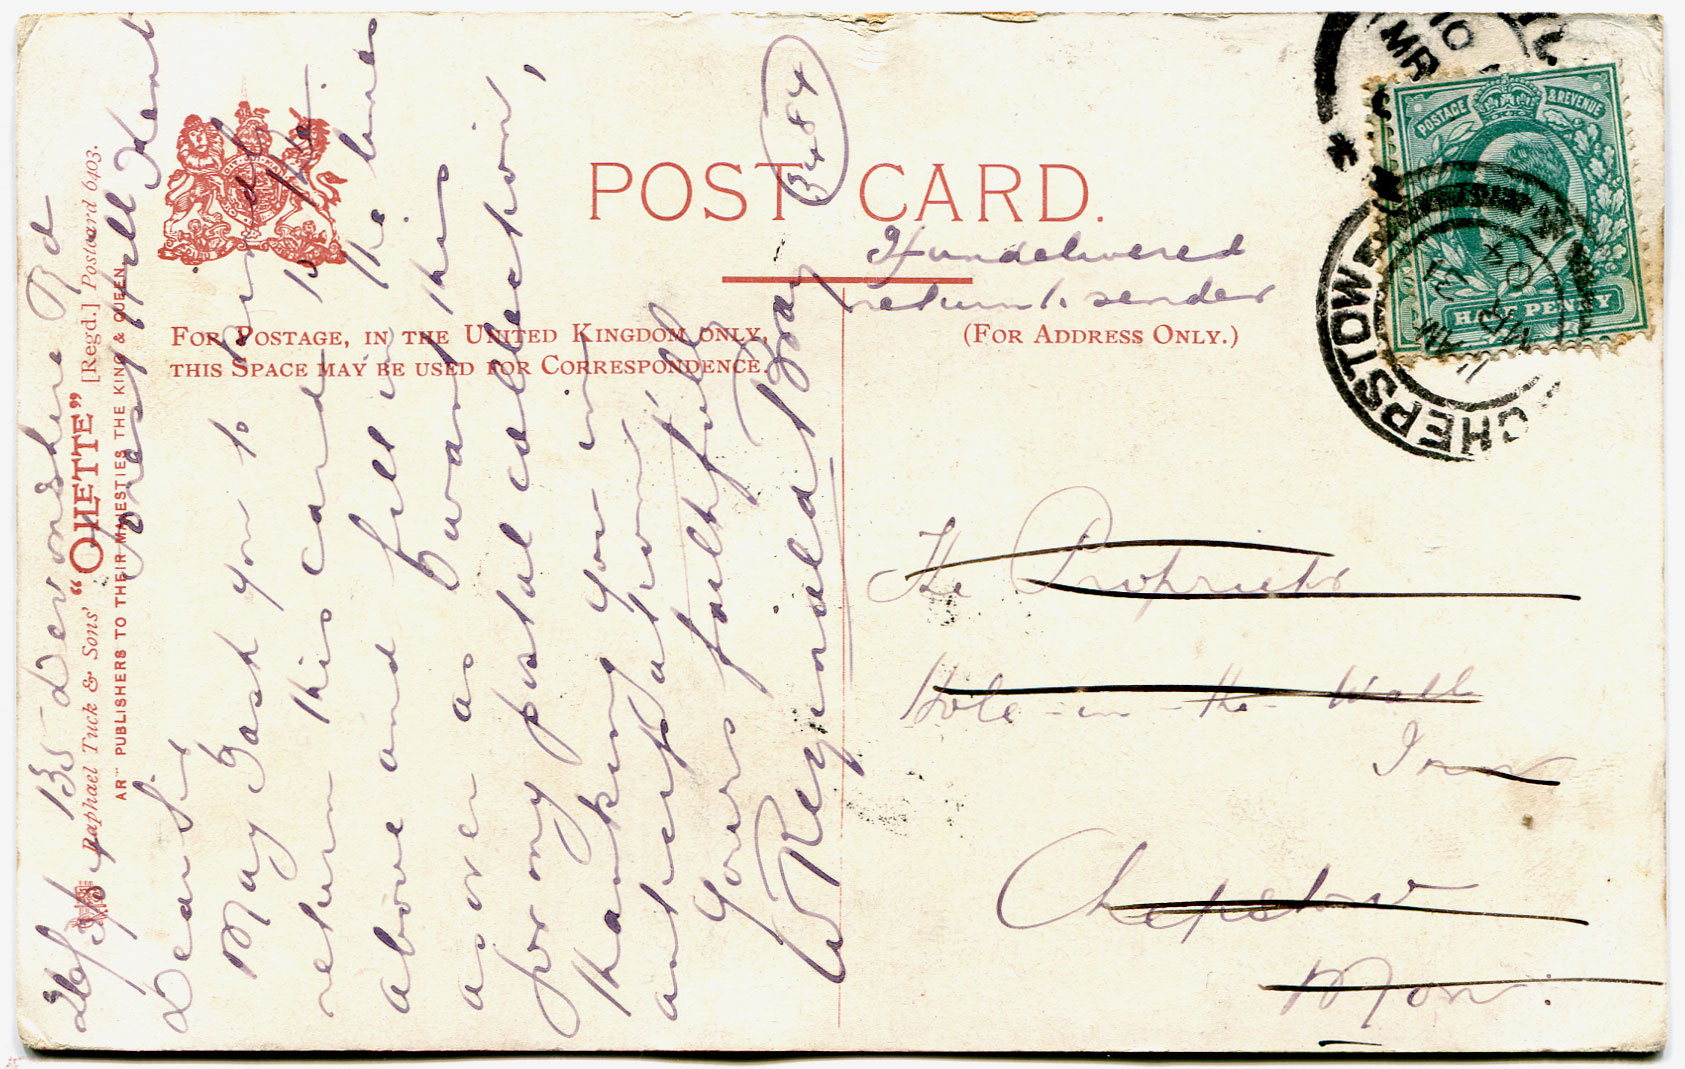 POST CARD.
3484
If undelivered
return to sender
FOR POSTAGE, IN THE UNITED KINGDOM ONLY,
THIS SPACE MAY BE USED FOR CORRESPONDENCE.
(FOR ADDRESS ONLY.)
POSTAGE & REVENUE
HALF PENNY
CHEPSTOW
The Proprietor
Hole-in-the-Wall
Inn
Chepstow
Mon.
135 Devonshire Rd
Forest Hill Kent
Raphael Tuck & Sons' "OILETTE" [Regd.] Postcard 6403.
ART PUBLISHERS TO THEIR MAJESTIES THE KING & QUEEN.
Dear Sir
May I ask you to kindly
return this card to the
above and fill in the lines
as over as I want this
for my postal collection,
thanking you in
anticipation,
Yours faithfully
W Reginald Bray